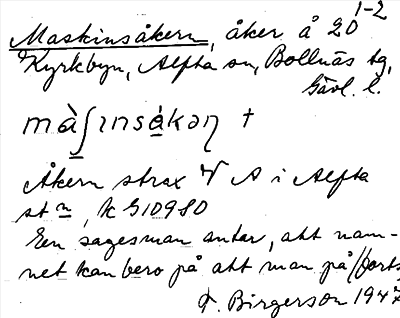 Maskinsåkern, åker å 20 1-2
Kyrkbyn, Alfta sn, Bollnäs tg,
Gävl. l.
mà̱ʃɪnså̱kəƞ +
Åkern strax V A i Alfta
st n, k G10980
En sagesman antar, att nam-
net kan bero på att man på //forts
F. Birgerson 1947